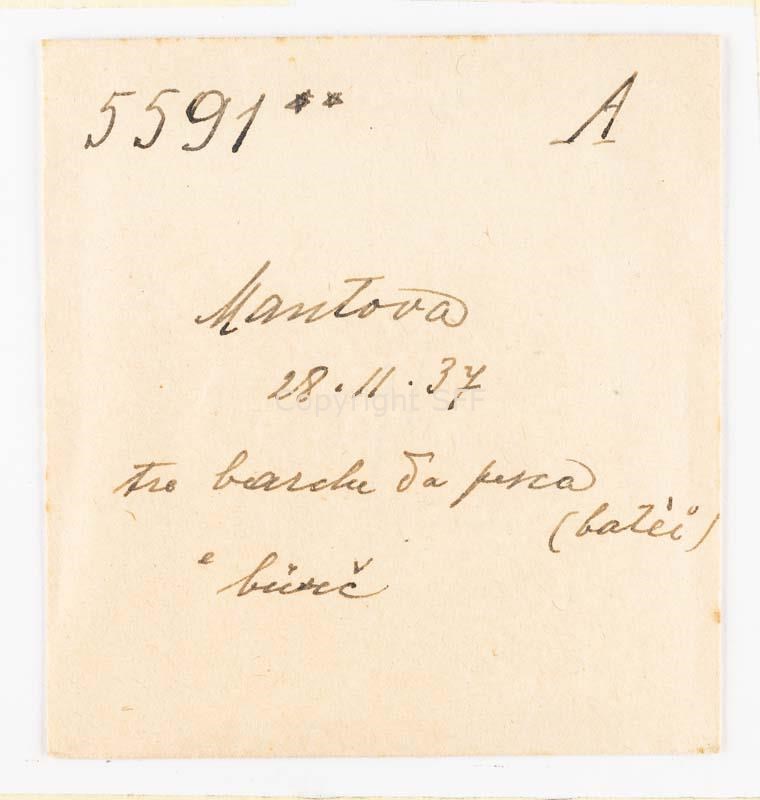 5591** A
Mantova
28.11.37
Copyright SFF
tre barche da pesca
(batèi)
e